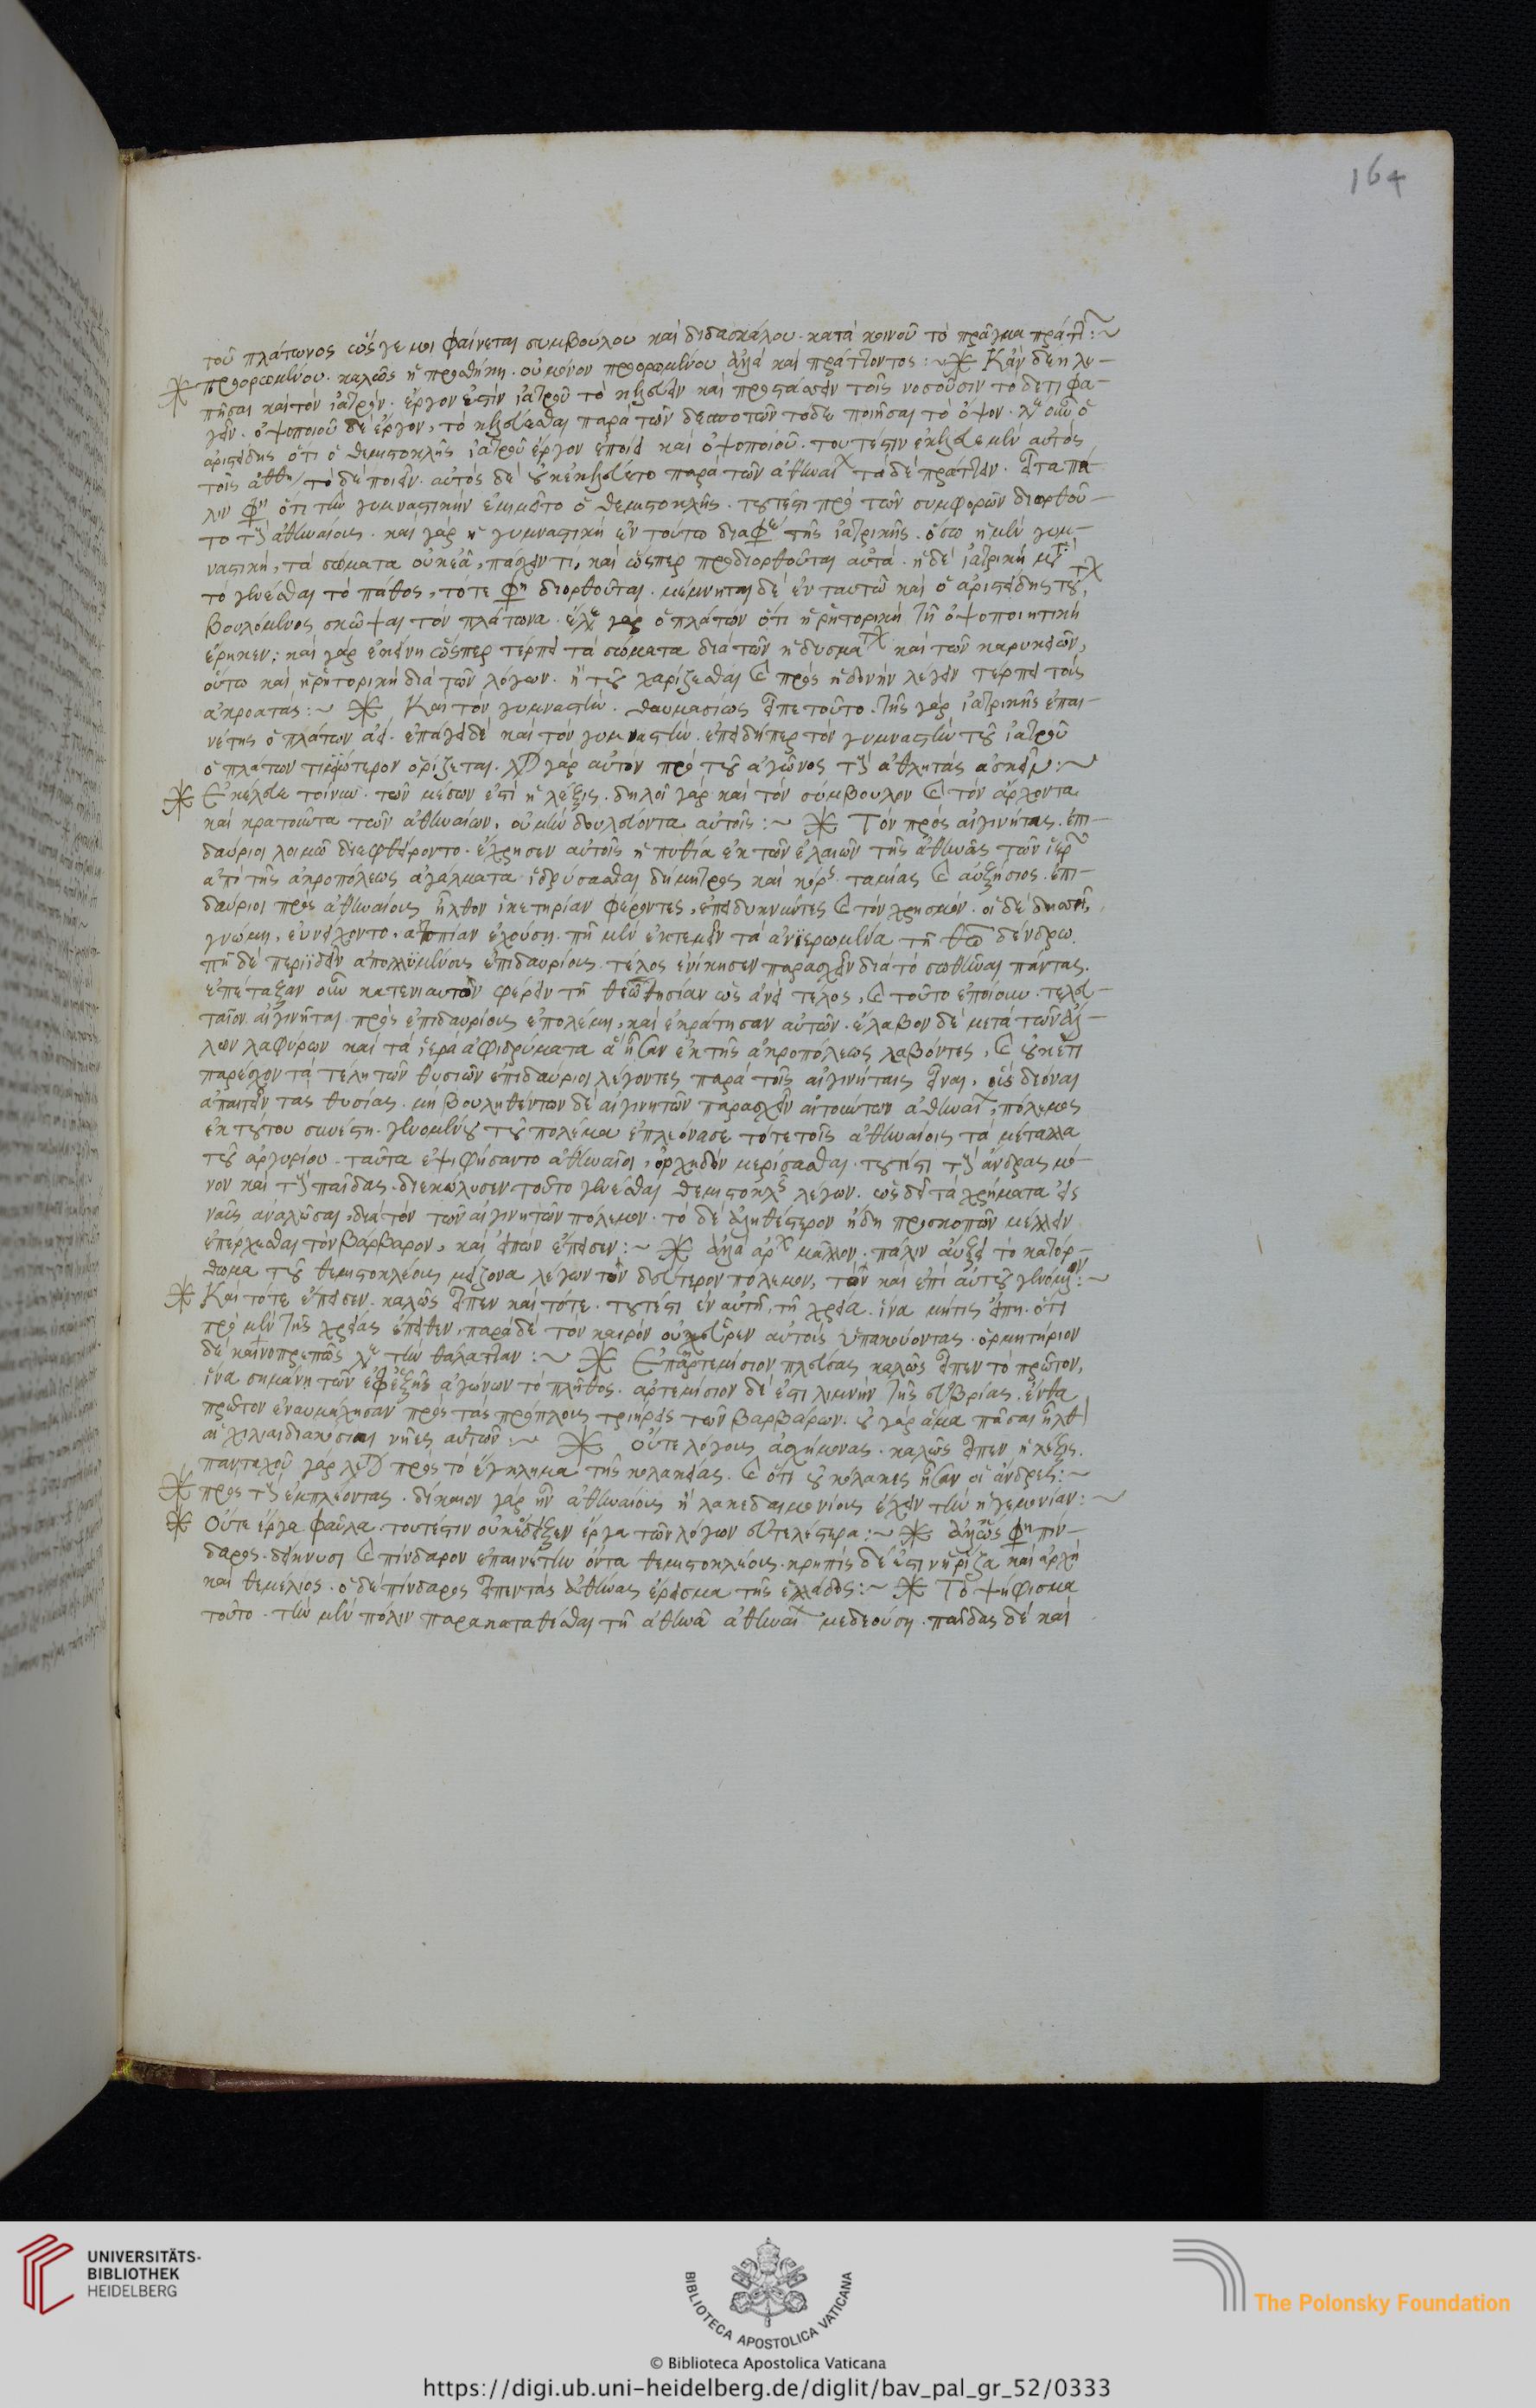 164
τοῦ πλάτωνος ὥς γε μοι φαίνεται συμβούλου καὶ διδασκάλου. κατὰ κοινοῦ τὸ πρᾶγμα
προορωμένου. καλῶς ἡ προσθήκη. οὐ μόνον προορωμένου ἀλλὰ καὶ πράττοντος :~ ※ Κἂν δέῃ λυ-
πῆσαι κατὰ τὸν ἰατρόν. ἔργον ἐστὶν ἰατροῦ τὸ κελεύειν καὶ προστάσσειν τοῖς νοσοῦσιν τὸ δέ τι φα-
γεῖν. ὀψοποιοῦ δὲ ἔργον, τὸ κελεύεσθαι παρὰ τῶν δεσποτῶν τόδε ποιῆσαι τὸ ὄψον. λέγει οὖν ὁ
ἀριστείδης ὅτι ὁ θεμιστοκλῆς ἰατροῦ ἔργον ἐποίει καὶ οὐκ ὀψοποιοῦ. τουτέστιν ἐκέλευε μὲν αὐτὸς
τοῖς ἀθη τόδε ποιεῖν. αὐτὸς δὲ οὐκ ἐκελεύετο παρὰ τῶν ἀθηναι τάδε πράττειν. εἶτα πά
λιν φη ὅτι τὴν γυμναστικὴν ἐμιμεῖτο ὁ θεμιστοκλῆς. τουτέστι πρὸ τῶν συμφορῶν διορθοῦ-
το τοὺς ἀθηναίους. καὶ γὰρ ἡ γυμναστικὴ ἐν τούτω διαφε τῆς ἰατρικῆς. ὅσω ἡ μὲν γυμ-
ναστικὴ, τὰ σώματα οὐκ ἐᾶ, πάσχειν τι, καὶ ὥσπερ προδιορθοῦται αὐτά. ἡ δὲ ἰατρικὴ μετὰ
τὸ γενέσθαι τὸ πάθος, τότε φη διορθοῦται. μέμνηται δὲ ἐν ταυτῶ καὶ ὁ ἀριστείδης
βουλόμενος σκῶψαι τὸν πλάτωνα. ἔλεγε γὰρ ὁ πλάτων ὅτι ἡ ῥητορικὴ τῆ ὀψοποιητικῆ
ἔοικεν: καὶ γὰρ ἐκείνη ὥσπερ τέρπει τὰ σώματα διὰ τῶν ἡδυσμάτων καὶ τῶν καρυκειῶν,
οὕτω καὶ ἡ ῥητορικὴ διὰ τῶν λόγων. ἢ τοῦ χαρίζεσθαι καὶ πρὸς ἡδονὴν λέγειν τέρπει τοὺς
ἀκροατάς :~ ※ Καὶ τὸν γυμναστὴν. θαυμασίως εἶπε τοῦτο. τῆς γὰρ ἰατρικῆς ἐπαι-
νέτης ὁ πλάτων ἀεί. ἐπάγει δὲ καὶ τὸν γυμναστὴν. ἐπειδήπερ τὸν γυμναστὴν τοῦ ἰατροῦ
ὁ πλάτων τιμιώτερον ὁρίζεται. λέγει γὰρ αὐτὸν πρὸ τοῦ ἀγῶνος τοὺς ἀθλητὰς ἀσκεῖν :~
※ Ἐκέλευε τοίνυν. τῶν μέσων ἐστὶ ἡ λέξις. δηλοῖ γὰρ καὶ τὸν σύμβουλον καὶ τὸν ἄρχοντα
καὶ κρατοῦντα τῶν ἀθηναίων, οὐ μὴν δουλεύοντα αὐτοῖς :~ ※ Τὸν πρὸς αἰγινήτας. ἐπι-
δαύριοι λοιμῶ διεφθείροντο. ἔχρησεν αὐτοῖς ἡ πυθία ἐκ τῶν ἐλαιῶν τῆς ἀθηνᾶς τῶν ἱερῶν
ἀπὸ τῆς ἀκροπόλεως ἀγάλματα ἱδρύσασθαι δήμητρος καὶ κόρης ταμίας καὶ αὐξήσιος. ἐπι-
δαύριοι πρὸς ἀθηναίους ἦλθον ἱκετηρίαν φέροντες, ἐπιδεικνύντες καὶ τὸν χρησμόν. οἱ δὲ
γνώμη, ἐνείχοντο. ἀτοπίαν ἐχούση. πῆ μὲν ἐκτεμεῖν τὰ ἀνϊερωμένα τῆ θεῶ δένδρω.
πῆ δὲ περιϊδεῖν ἀπολλϋμένους ἐπιδαυρίους. τέλος ἐνίκησεν παρασχεῖν διὰ τὸ σωθῆναι πάντας.
ἐπέταξαν οὖν κατενιαυτὸν φέρειν τῆ θεῶ θυσίαν ὡς ἀνεὶ τέλος, καὶ τοῦτο ἐποίουν. τελευ-
ταῖον αἰγινῆται πρὸς ἐπιδαυρίους ἐπολέμη, καὶ ἐκράτησαν αὐτῶν. ἔλαβον δὲ μετὰ τῶν ἄλ-
λων λαφύρων καὶ τὰ ἱερὰ ἀφιδρύματα ἃ ἦσαν ἐκ τῆς ἀκροπόλεως λαβόντες, καὶ οὐκέτι
παρέσχον τὰ τέλη τῶν θυσιῶν ἐπιδαύριοι λέγοντες παρὰ τοῖς αἰγινήταις εἶναι, οὓς δέοναι
ἀπαιτεῖν τὰς θυσίας. μὴ βουληθέντων δὲ αἰγινητῶν παρασχεῖν αἰτούντων ἀθηναι, πόλεμος
ἐκ τούτου συνέστη. γενομένου τοῦ πολέμου ἐπλεόνασε τότε τοῖς ἀθηναίοις τὰ μέταλλα
τοῦ ἀργυρίου. ταῦτα ἐψηφήσαντο ἀθηναῖοι, ὀρχηδὸν μερίσασθαι. τουτέστι τοὺς ἄνδρας μό-
νον καὶ τοὺς παῖδας. διεκώλυσεν τοῦτο γενέσθαι θεμιστοκλῆς λέγων. ὡς δεῖ τὰ χρήματα εἰς
ναῦς ἀναλῶσαι, διὰ τὸν τῶν αἰγινητῶν πόλεμον. τὸ δὲ ἀληθέστερον ἤδη προσκοπῶν μέλλειν
ἐπέρχεσθαι τὸν βάρβαρον, καὶ εἰπὼν ἔπεισεν :~ ※ ἀλλὰ μᾶλλον. πάλιν αὔξει τὸ κατόρ-
θωμα τοῦ θεμιστοκλέους μείζονα λέγων τὸν δεύτερον πόλεμον, τὸν καὶ ἐπὶ αὐτοῦ γενόμενον :~
※ Καὶ τότε ἔπεισεν. καλῶς εἶπεν καὶ τότε. τουτέστι ἐν αὐτῆ τῆ χρεία. ἵνα μήτις εἴπη. ὅτι
πρὸ μὲν τῆς χρείας ἔπειθεν, παρὰ δὲ τὸν καιρὸν οὐχ εὗρεν αὐτοὺς ὑπακούοντας. ὁρμητήριον
δὲ καινοπρεπῶς λέγει τὴν θάλατταν :~ ※ Ἐπ' ἀρτεμίσιον πλεύσας καλῶς εἶπεν τὸ πρῶτον,
ἵνα σημάνη τῶν ἐφεξῆς ἀγώνων τὸ πλῆθος. ἀρτεμίσιον δὲ ἐστι λιμνὴν τῆς εὐβοίας. ἔνθα
πρῶτον ἐναυμάχησαν πρὸς τὰς πρόπλους τριήρεις τῶν βαρβάρων. οὐ γὰρ ἅμα πᾶσαι ἦλθον
αἱ χίλιαι διακόσιαι νῆες αὐτῶν :~ ※ Οὔτε λόγους ἀσχήμονας. καλῶς εἶπεν ἡ λέξις.
πανταχοῦ γὰρ λέγει πρὸς τὸ ἔγκλημα τῆς κολακείας. καὶ ὅτι οὐ κόλακες ἦσαν οἱ ἄνδρες :~
※ πρὸς τοὺς ἐμπλέοντας. δίκαιον γὰρ ἦν ἀθηναίους ἢ λακεδαιμονίους ἔχειν τὴν ἡγεμονίαν :~
※ Οὔτε ἔργα φαῦλα. τουτέστιν οὐκ ἔδειξεν ἔργα τῶν λόγων εὐτελέστερα :~ ※ ἀλλ' ὥς φη πίν-
δαρος. δείκνυσι καὶ πίνδαρον ἐπαινέτην ὄντα θεμιστοκλέους. κρηπὶς δέ ἐστιν ἡ ῥίζα καὶ ἀρχὴ
καὶ θεμέλιος. ὁ δὲ πίνδαρος εἶπεν τὰς ἀθήνας ἔρεισμα τῆς ἑλλάδος :~ ※ Τὸ ψήφισμα
τοῦτο. τὴν μὲν πόλιν παρακαταθέσθαι τῆ ἀθηνᾶ ἀθηναι μεδεούση. παῖδας δὲ καὶ
UNIVERSITÄTS-
BIBLIOTHEK
HEIDELBERG
BIBLIOTECA APOSTOLICA VATICANA
The Polonsky Foundation
© Biblioteca Apostolica Vaticana
https://digi.ub.uni-heidelberg.de/diglit/bav_pal_gr_52/0333